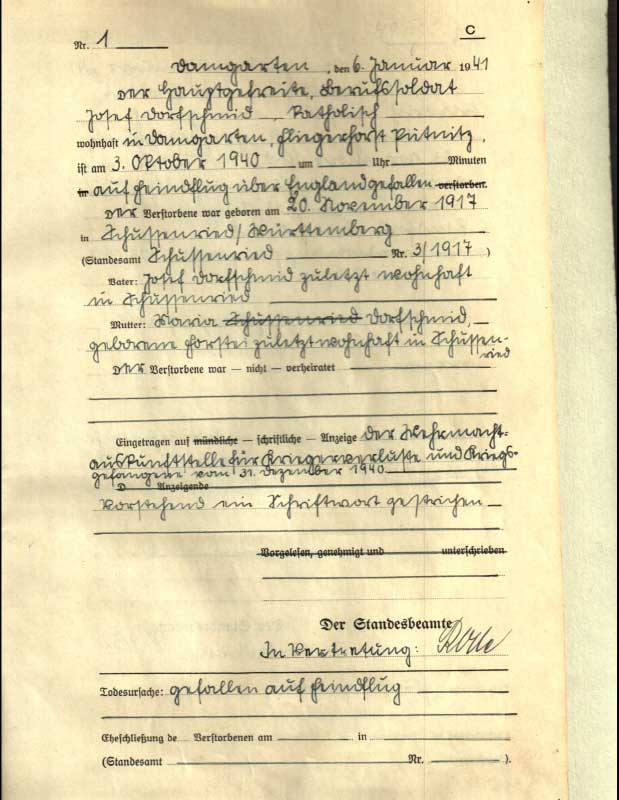 C
Nr. 1
Damgarten, den 6. Januar 1941
Der Hauptgefreite, Berufssoldat
Josef Dorfschmid, Katholisch
wohnhaft in Damgarten, Fliegerhorst Pütnitz,
ist am 3. Oktober 1940 um Uhr Minuten
in auf Feindflug über England gefallen verstorben.
Der Verstorbene war geboren am 20. November 1917
in Schussenried/Württemberg
(Standesamt Schussenried Nr. 3/1917)
Vater: Josef Dorfschmid zuletzt wohnhaft
in Schussenried
Mutter: Maria Schussenried Dorfschmid,
geborene zuletzt wohnhaft in Schussen-
ried
Der Verstorbene war — nicht — verheiratet
Eingetragen auf mündliche — schriftliche — Anzeige der Wehrmacht-
auskunftstelle für Kriegerverluste und Kriegs-
gefangene vom 31. Dezember 1940
D Anzeigende
Vorstehend ein Schriftwort gestrichen
Vorgelesen, genehmigt und unterschrieben
Der Standesbeamte
In Vertretung:
Todesursache: gefallen auf Feindflug
Eheschließung de Verstorbenen am in
(Standesamt Nr. ).